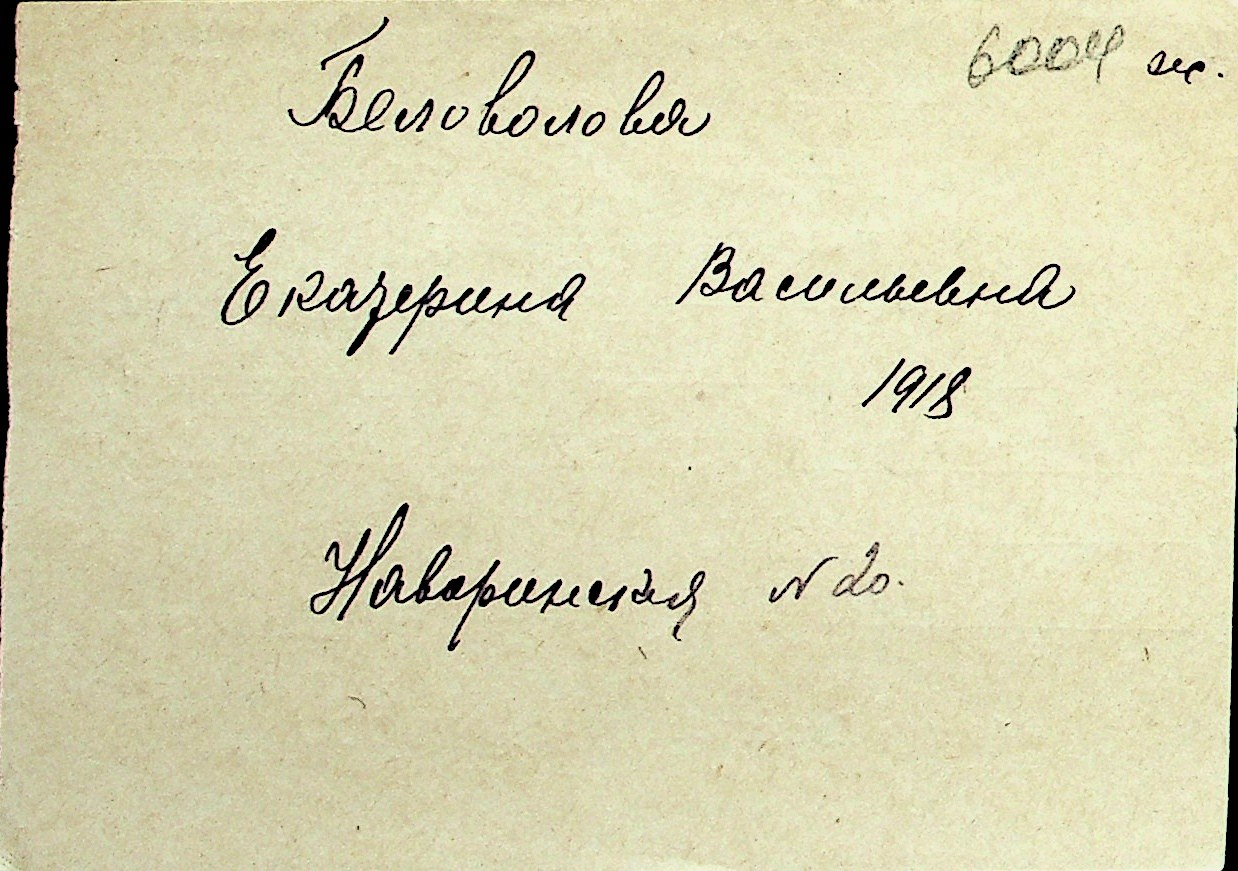 6004 ж.
Беловолова
Екатерина Васильевна
1918
Наваринская N 20.